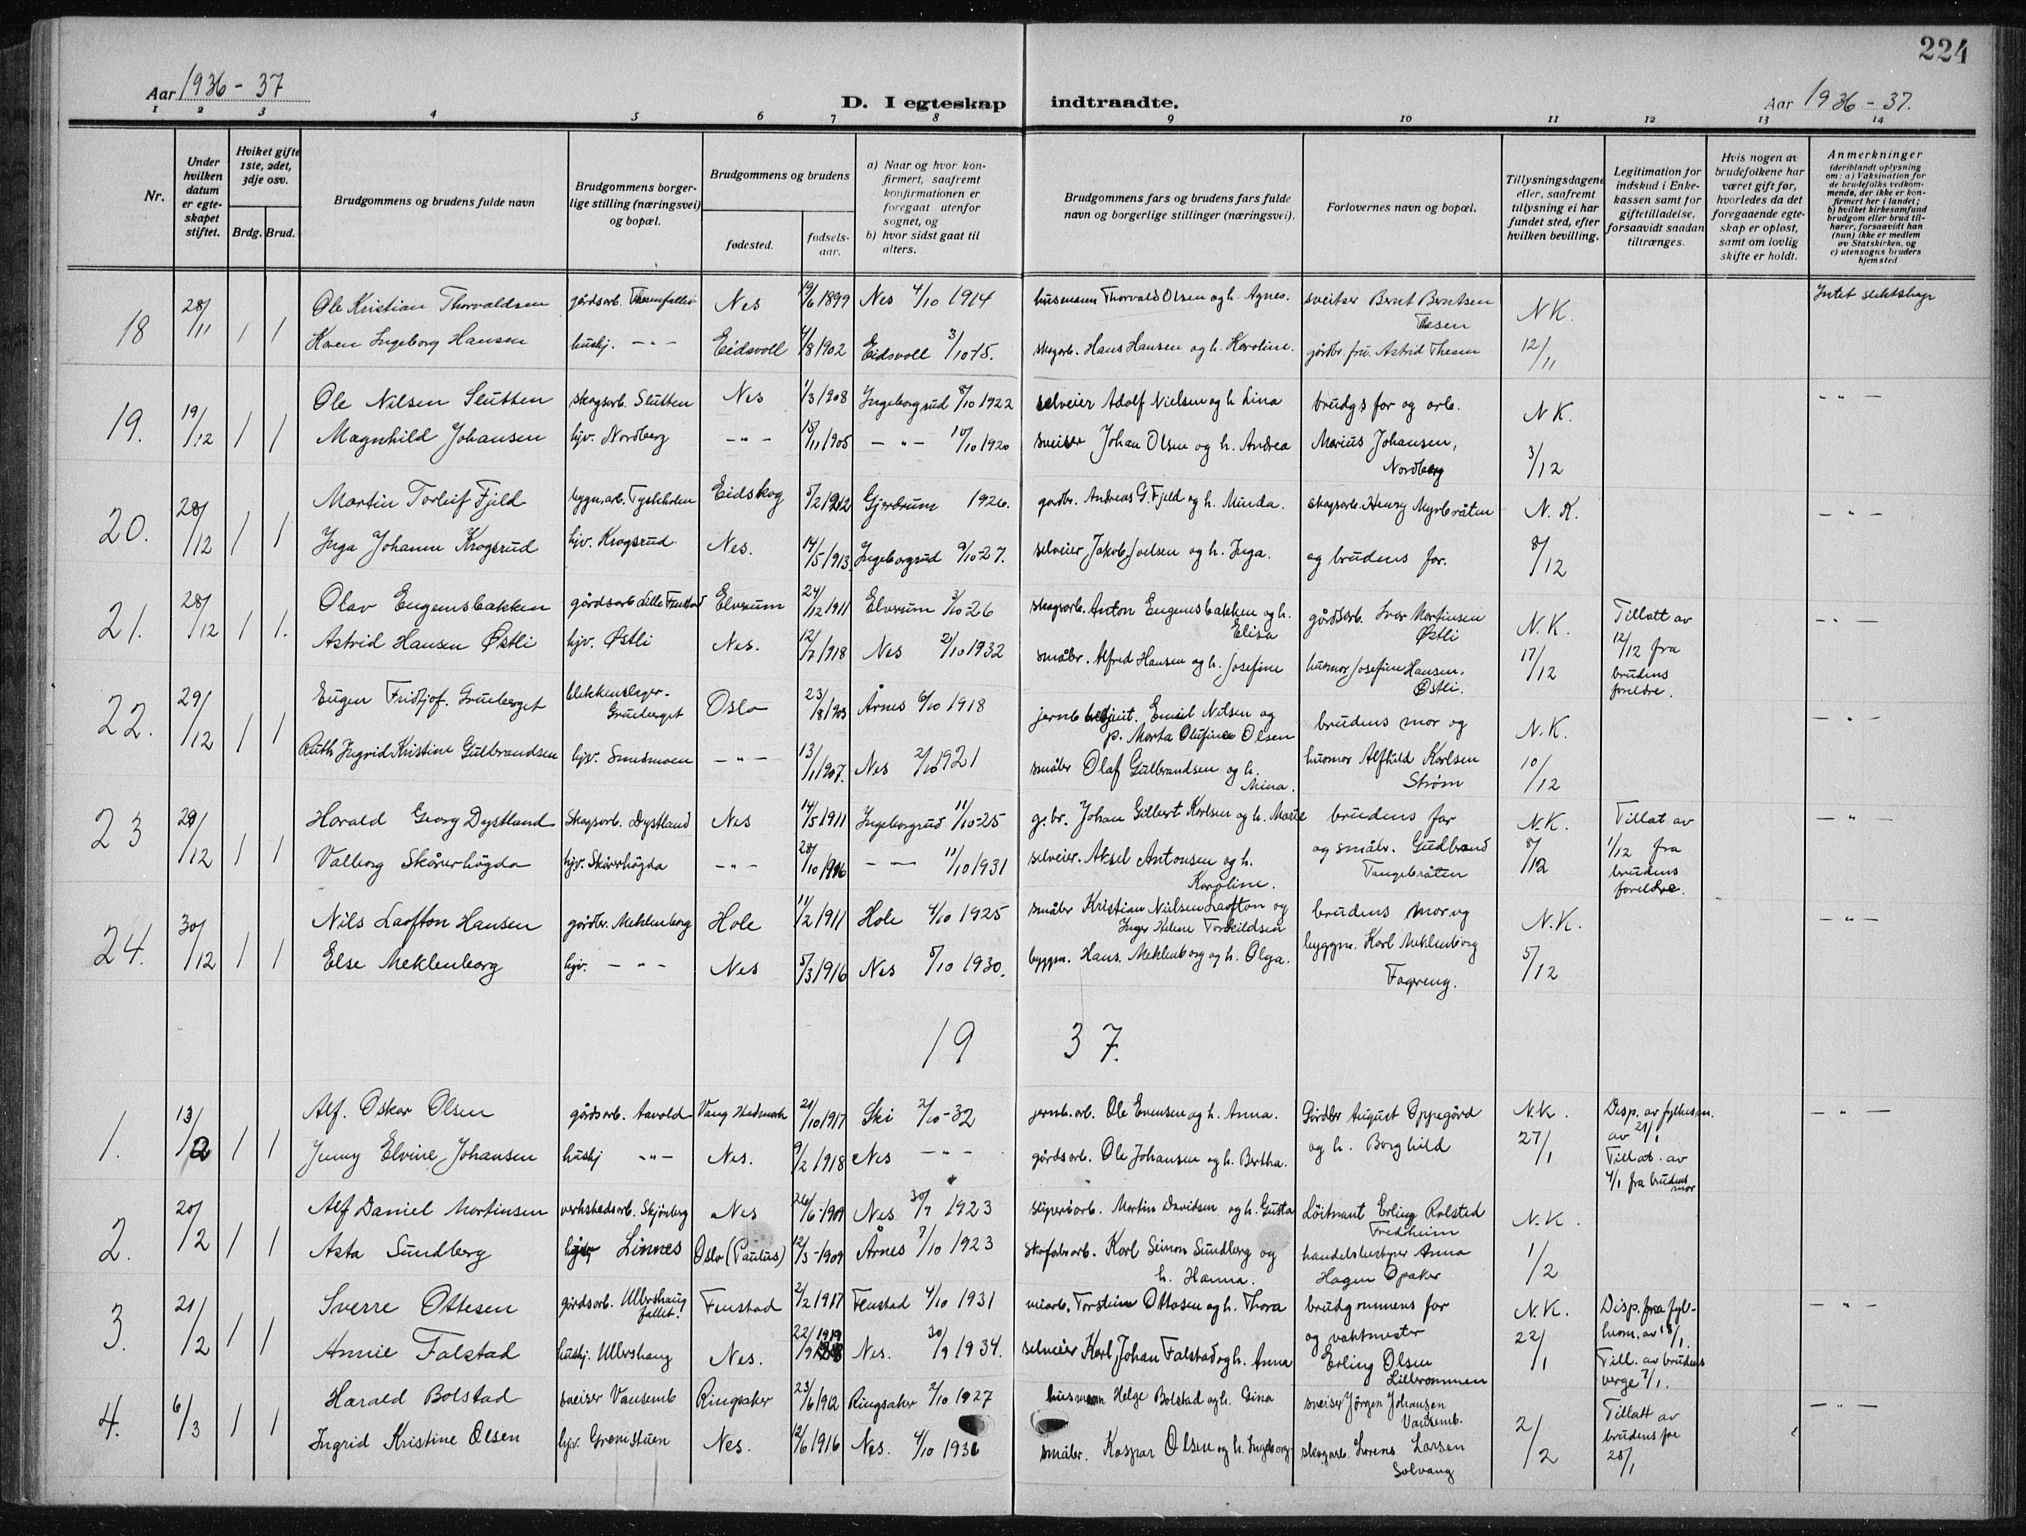 224
Aar 1936 - 37
D. I egteskap indtraadte.
Aar 1936 - 37.
1 2 3 4 5 6 7 8 9 10 11 12 13 14
Nr.
Under hvilken datum er egteskapet stiftet.
Hviket gifte 1ste, 2det, 3dje osv.
Brdg. Brud.
Brudgommens og brudens fulde navn
Brudgommens borgerlige stilling (næringsvei) og bopæl.
Brudgommens og brudens
fødested.
fødselsaar.
a) Naar og hvor konfirmert, saafremt konfirmationen er foregaat utenfor sognet, og
b) hvor sidst gaat til alters.
Brudgommens fars og brudens fars fulde navn og borgerlige stillinger (næringsvei).
Forlovernes navn og bopæl.
Tillysningsdagene eller, saafremt tillysning ei har fundet sted, efter hvilken bevilling.
Legitimation for indskud i Enkekassen samt for giftetilladelse, forsaavidt saadan tiltrænges.
Hvis nogen av brudefolkene har været gift før, hvorledes da det foregaaende egteskap er opløst, samt om lovlig skifte er holdt.
Anmerkninger
(deriblandt oplysning om: a) Vaksination for de brudefolks vedkommende, der ikke er konfirmert her i landet; b) hvilket kirkesamfund brudgom eller brud tilhører, forsaavidt han (hun) ikke er medlem av Statskirken, og c) utensogns bruders hjemsted
18 28/11 1 1 Ole Kristian Thorvaldsen gårdsarb. Nes 19/6 1899 Nes 4/10 1914 husmann Thorvald Olsen og h. Agnes. sveitser Bernt Berntsen Thesen N.K. Intet slektskap
Karen Ingeborg Hansen hushj. - " - Eidsvoll 4/8 1902 Eidsvoll 3/10-15. skogarb. Hans Hansen og h. Karoline. gårdbr. fru. Astrid Thesen 12/11
19. 19/12 1 1 Ole Nilsen Slutten skogsarb. Slutten Nes 1/3 1908 Ingeborgrud 8/10 1922 selveier Adolf Nielsen og h. Lina brudgs far og arb. N.K. - " -
Magnhild Johansen hjv. Nordberg - " - 15/11 1905 - " - 10/10 1920 sveiser Johan Olsen og h. Andrea Marius Johansen, Nordberg 3/12
20. 28/12 1 1 Martin Torleif Fjeld bygn.arb. Eidskog 5/2 1912 Gjerdrum 1926. gardbr. Andreas G. Fjeld og h. Minda. skogsarb. Henry Myrbråten N.K. - " -
Inga Johanne Krogsrud hjv. Krogsrud. Nes. 14/5 1913. Ingeborgrud 9/10-27. selveier Jakob Joelsen og h. Inga. og brudens far. 8/12
21. 28/12 1 1. Olav Eugensbakken gårdsarb. Lille Fenstad Elverum 24/12 1911 Elverum 3/10-26 skogsarb. Anton Eugensbakken og h. Elisa gårdsarb. Ivar Martinsen Østli N.K. Tillatt av 12/12 fra brudens foreldre. - " -
Astrid Hansen Østli hjv. Østli Nes. 12/7 1918 Nes 2/10 1932 småbr. Alfred Hansen og h. Josefine husmor Josefine Hansen, Østli. 17/12
22. 29/12 1 1 Eugen Fridtjof. Grueberget blikkenslager. Grueberget Oslo 23/8 1903 Årnes 6/10 1918 jernb. betjent. Emil Nilsen og p. Marta Olufine Olsen brudens mor og N.K. - " -
Ruth Ingrid Kristine Gulbrandsen hjv. Smedmoen - " - 13/1 1907. Nes 2/10 1921 småbr Olaf Gulbrandsen og h. Mina. husmor Alfhild Karlsen Strøm 10/12
23 29/12 1 1 Harald Georg Dystland skogsarb. Dystland Nes 14/5 1911 Ingeborgrud 11/10-25 g.br. Johan Gilbert Karlsen og h. Marie brudens far N.K. Tillat av 1/12 fra brudens foreldre. - " -
Valborg Skårerhøgda hjv. Skårerhøgda - " - 28/10 1916 - " - 11/10 1931 selveier. Aksel Antonsen og h. Karoline. og småbr. Gudbrand Tangebråten 8/12
24. 30/12 1 1 Nils Laafton Hansen gårdbr. Meklenborg Hole 11/2 1911 Hole 4/10 1925 småbr Kristian Nielsen Laafton og Inger Helene Torkildsen brudens mor og N.K. - " -
Else Meklenborg hjv. - " - Nes 5/3 1916 Nes 5/10 1930. byggm. Hans Meklenborg og h. Olga. byggm. Karl Meklenborg Fagreng. 5/12
19 37.
1. 13/2 1 1 Alf. Oskar Olsen gårdsarb. Aavold Vang Hedmark 21/10 1917 Ski 2/10-32 jernb.arb. Ole Evensen og h. Anna. Gårdbr August Oppegård N.K. Disp. av fylkesm. av 21/1 - " -
Jenny Elvine Johansen hushj - " - Nes. 9/2 1918 Nes - " - gårdsarb. Ole Johansen og h. Bertha. og h. Borghild 27/1 Tillat. av 4/1 fra brudens mor
2. 20/2 1 1 Alf Daniel Martinsen verkstedsarb. Skjønberg Nes 26/6-1909 Nes 30/9 1923 sliperiarb. Martin Davidsen og h. Gusta Løitnant Erling Rolstad Fredheim N.K.
Asta Sundberg Linnes Oslo (Paulus) 12/5-1909 Årnes 7/10 1923 skofabarb. Karl Simon Sundberg og h. Hanna. handelsbestyrer Anna Hagen Opaker 1/2
3. 21/2 1 1 Sverre Ottesen gårdsarb. Ullershaug fallet. Fenstad 2/2 1917 Fenstad 4/10 1931 veiarb. Torstein Ottosen og h. Thora brudgommens far N.K. Disp. fra fylkesm. av 18/1. - " -
Annie Falstad hushj. Ullershaug Nes. 22/9 1919 Nes. 30/9 1934. selveier Karl Johan Falstad og h. Anna og vaktmester Erling Olsen Lillerommen 22/1 Till. av brudens verge 7/1.
4. 6/3 1 1 Harald Bolstad sveiser Vansemb Ringsaker 23/6 1912 Ringsaker 2/10 1927 husmann Helge Bolstad og h. Gina sveiser Jørgen Johansen Vansemb. 2/2 Tillatt av brudens far 28/1 - " -
Ingrid Kristine Olsen hjv. Grenistuen Nes. 12/6 1916 Nes. 4/10 1936 småbr. Kaspar Olsen og h. Ingeborg. skogarb. Lorens Larsen Solvang